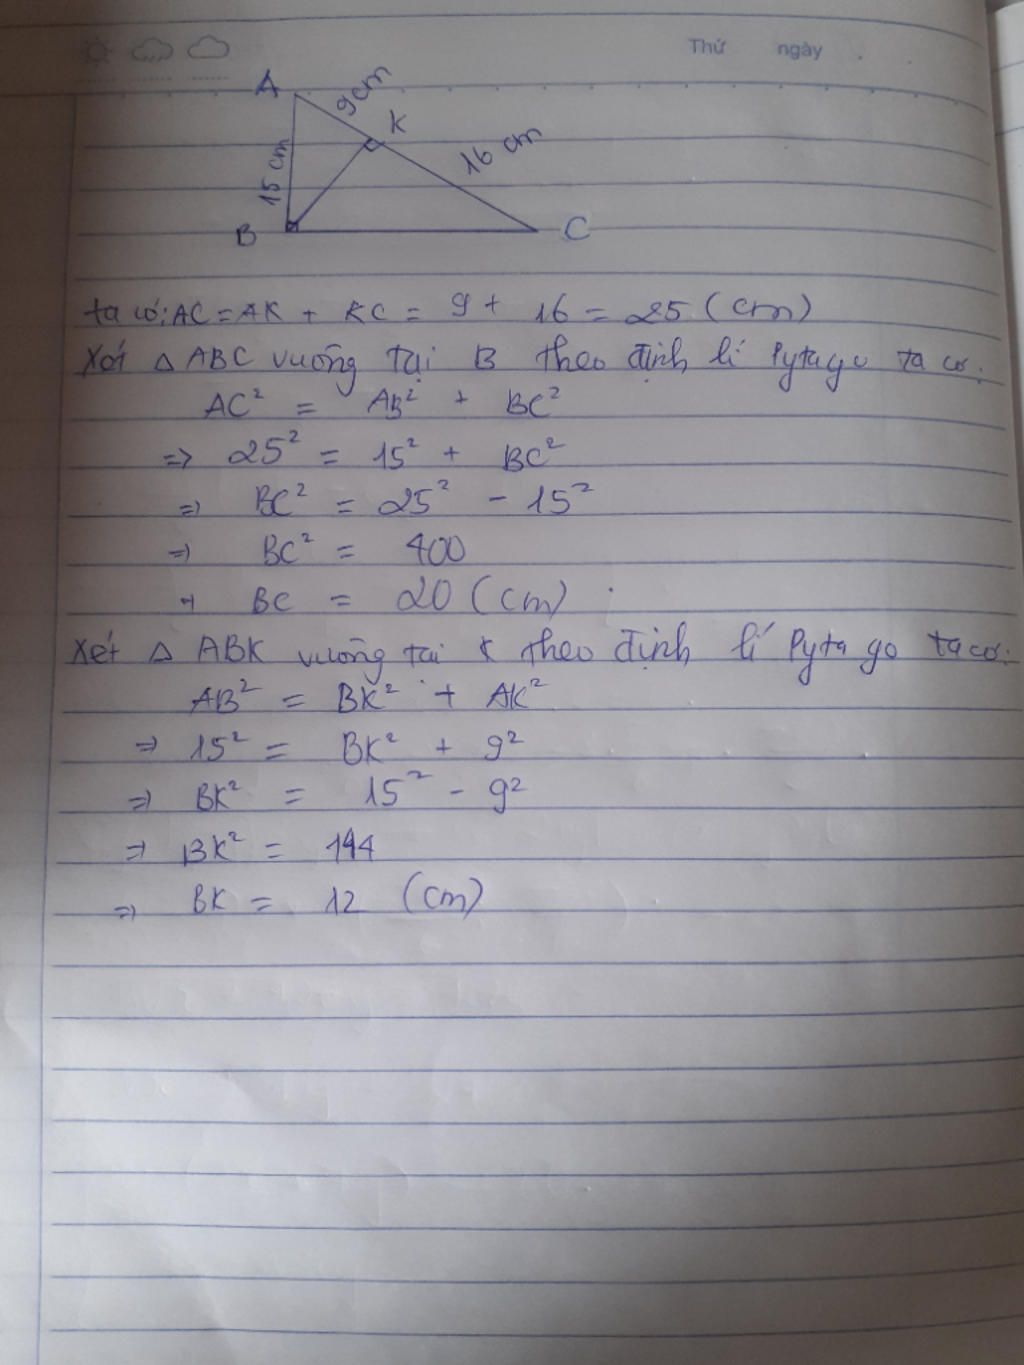 Thứ ngày
A
9cm
K
16 cm
15 cm
B
C
ta có: AC = AK + KC = 9 + 16 = 25 (cm)
Xét △ ABC vuông tại B theo định lí Pytago ta có:
AC² = AB² + BC²
=> 25² = 15² + BC²
=> BC² = 25² - 15²
=> BC² = 400
=> BC = 20 (cm)
Xét △ ABK vuông tại K theo định lí Pytago ta có:
AB² = BK² + AK²
=> 15² = BK² + 9²
=> BK² = 15² - 9²
=> BK² = 144
=> BK = 12 (cm)